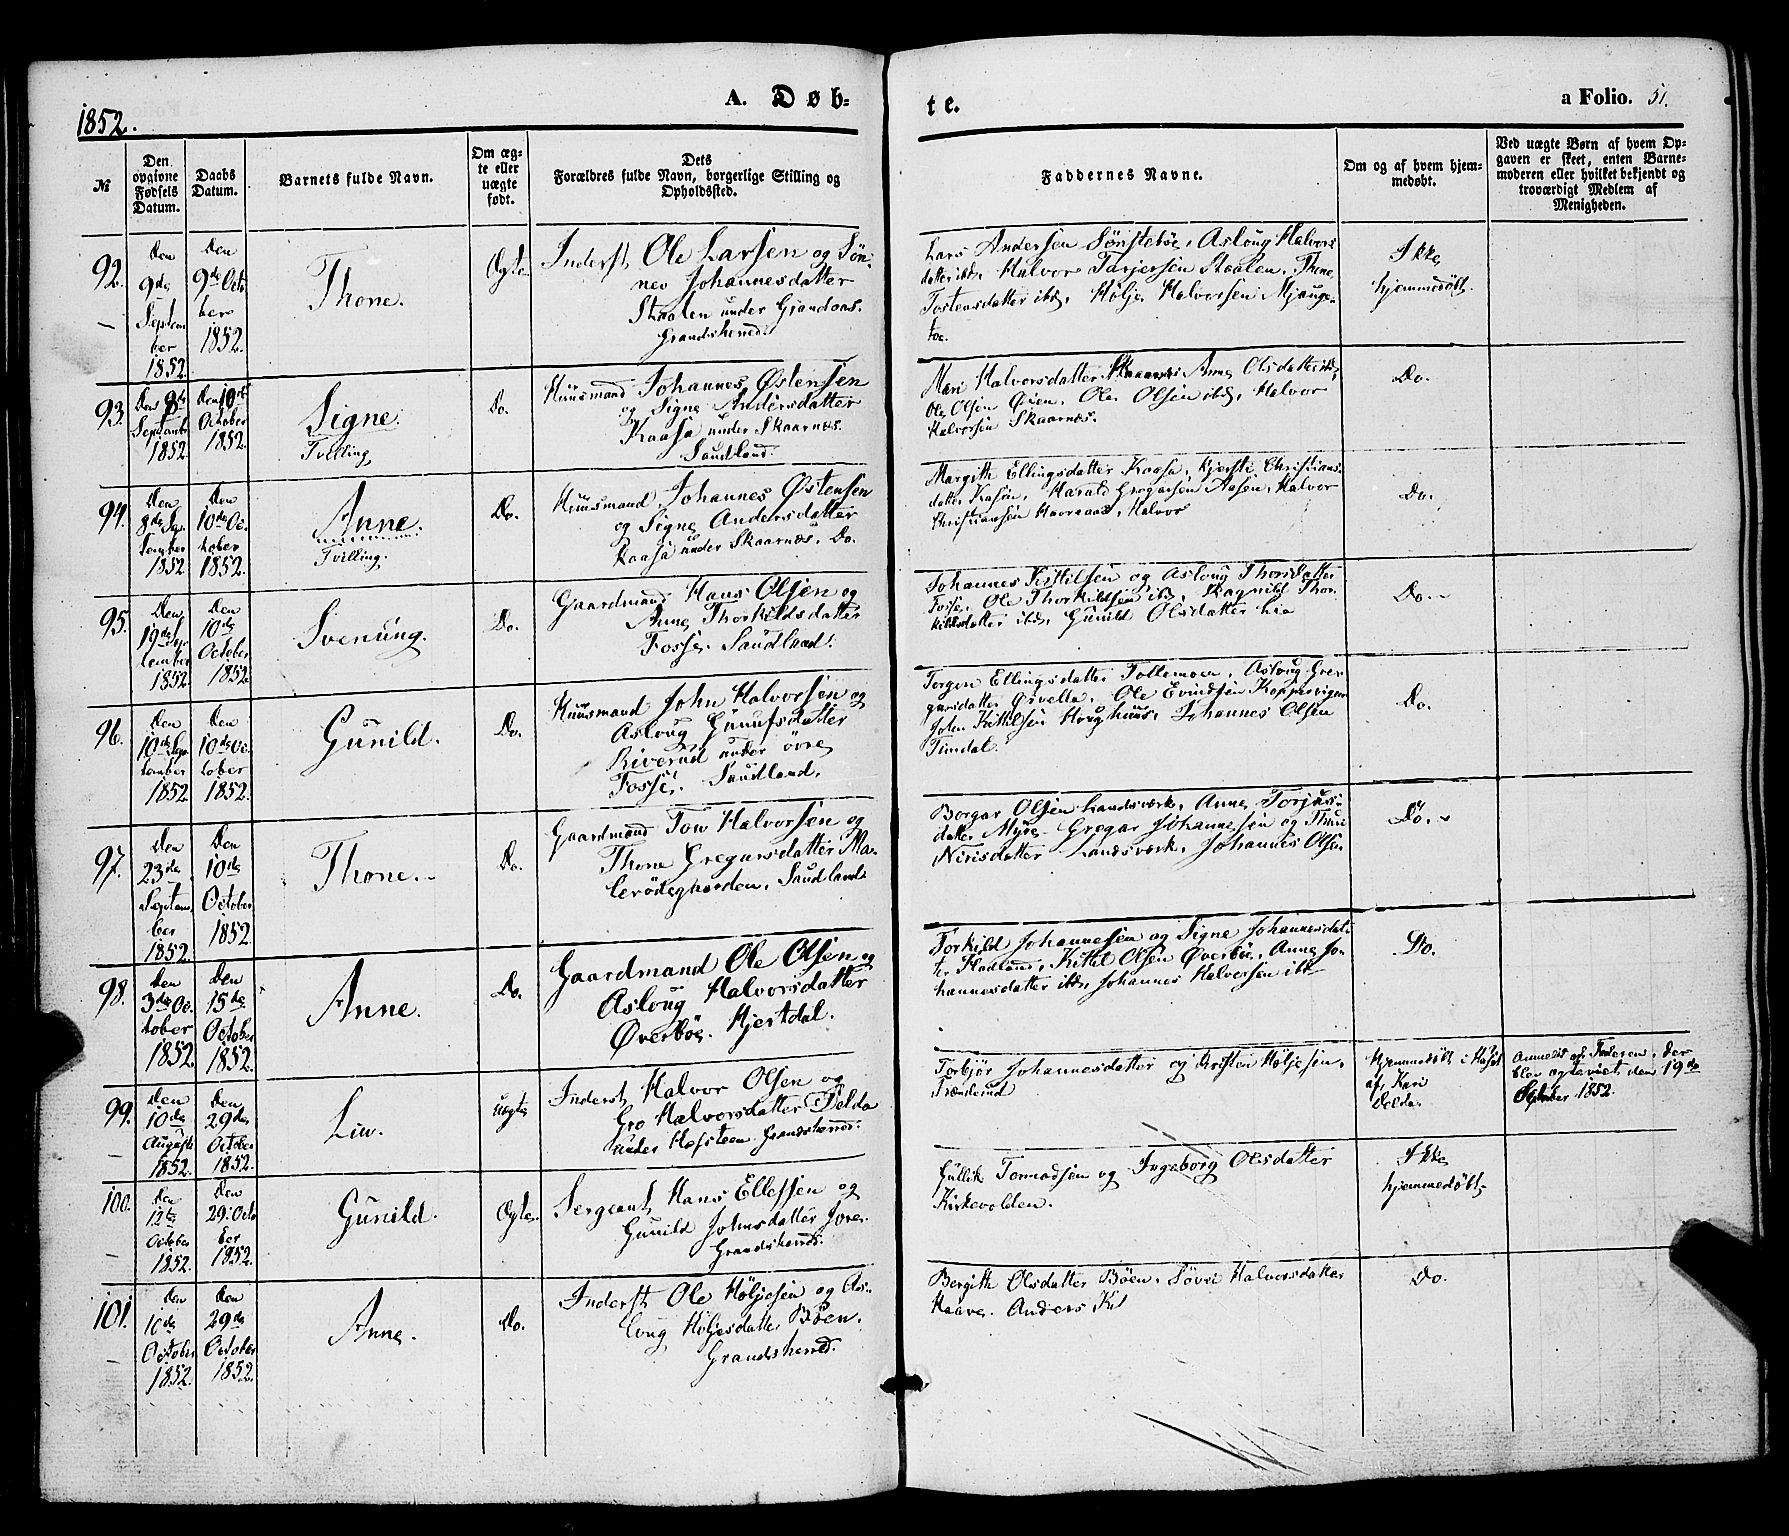 1852.
A. Døb-
te.
a Folio. 51.
№
Den opgivne Fødsels Datum.
Daabs Datum.
Barnets fulde Navn.
Om ægte eller uægte født.
Dets
Forældres fulde Navn, borgerlige Stilling og
Opholdssted.
Faddernes Navne.
Om og af hvem hjemmedøbt.
Ved uægte Børn af hvem Opgaven er skeet, enten Barnemoderen eller hvilket bekjendt og troværdigt Medlem af Menigheden.
92.
den
9de
Septem
ber
1852.
den
9de Octo
ber
1852.
Thone.
Ægte
Inderst Ole Larsen og Søn-
nev Johannesdatter
Staalen under Grandoas.
Grandsherred.
Lars Andersen Sønstebøe, Asloug Halvors
datter ibd, Halvor Tarjersen Staalen, Thone
Tostensdatter ibd, Hølje Halvorsen Mjauge-
toe.
Ikke
hjemmedøbt.
93.
Den 8de
Septemb
1852.
den 10de
October
1852.
Signe.
Tvilling
Do.
Huusmand Johannes Østensen
og Signe Andersdatter
Kaasa under Skaarnæs.
Saudland.
Mari Halvorsdatter Skaarnæs Anne Olsdatter ibd,
Ole Olsen Øien, Ole Olsen ibd, Halvor
Halvorsen Skaarnæs.
Do.
94.
Den
8de Sep
tember
1852
Den
10de Oc
tober
1852.
Anne.
Tvilling.
Do.
Huusmand Johannes Østensen
og Signe Andersdatter
Kaasa under Skaarnæs. Do.
Margith Ellingsdatter Kaasa, Kjersti Christians
datter Kasin, Harald Gregarsen Aasen, Halvor
Christiansen Halvor
Do.
95.
Den
19de Sep
tember
1852.
Den
10de
October
1852.
Svenung.
Do.
Gaardmand Hans Olsen og
Anne Thorkildsdatter
Fosse. Saudland.
Johannes Kittilsen og Asloug Thorsdatter
Fosse, Ole Thorkildsen ibd, Ragnild Thor
kildsdatter ibd, Gunild Olsdatter Lia
Do.
96.
Den
10de Sep
tember
1852.
Den
10de Oc
tober
1852.
Gunild.
Do.
Huusmand John Halvorsen og
Asloug Gunufsdatter
Riverud under øvre
Fosse. Saudland.
Torgon Ellingsdatter Tollemoen, Aslaug Gre-
garsdatter Ørvella, Ole Evindsen Kopparvigen
John Kittilsen Houghuus, Johannes Olsen
Timdal.
Do.
97.
Den
23de
Septem
ber
1852.
Den
10de
October
1852.
Thone.
Do.
Gaardmand Tow Halvorsen og
Thone Gregarsdatter Ma-
lerødegaarden, Saudland
Borgar Olsen Landsværk, Anne Torjus-
datter Myre. Gregar Johannesen og
Nirisdatter Landsværk, Johannes Olsen
Do.
98.
den
3de Oc
tober
1852.
den
15de
October
1852.
Anne.
Do.
Gaardmand Ole Olsen og
Aslaug Halvorsdatter
Øverbøe. Hjertdal.
Torkild Johannesen og Signe Johannesdat
ter, Kittil Olsen Øverbøe, Anne Jo-
hannesdatter ibd, Johannes Halvorsen ibd
Do.
99.
den
10de
August
1852.
den
29de
October
1852.
Liv.
uægte
Inderst Halvor Olsen og
Gro Halvorsdatter Delda
under Hofsteen. Grandsherred.
Torbjør Johannesdatter og Kristen Høljesen,
Trænderud
Hjemmedøbt i
af Kari
Delda.
Anmeldt af Faderen, der
blev den 19de
1852.
100.
Den
12te
October
1852.
Den
29. Octo
ber
1852.
Gunild.
Ægte.
Sergeant Hans Ellefsen og
Gunild Johnsdatter Jore.
Grandsherred.
Gullik Tormodsen og Ingeborg Olsdatter
Kirkevolden.
Ikke
hjemmedøbt
101.
den
10de
October
1852.
den
29de
October
1852.
Anne.
Do.
Inderst Ole Høljesen og As-
loug Høljesdatter Bøen.
Grandsherred.
Bergith Olsdatter Bøen. Søvri Halvorsdatter
Haave. Anders
Do.